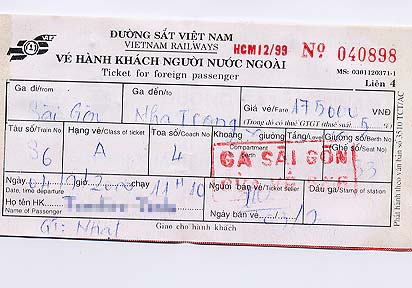 ĐƯỜNG SẮT VIỆT NAM
VIETNAM RAILWAYS HCM12/99 Nº 040898
VÉ HÀNH KHÁCH NGƯỜI NƯỚC NGOÀI MS: 0301120371-1
Ticket for foreign passenger Liên 4
Ga đi/from Ga đến/to Giá vé/Fare 175000 VNĐ
Sài Gòn Nha Trang (Trong đó có thuế GTGT (thuế suất: 5 %)
Tàu số/Train No Hạng vé/Class of ticket Toa số/Coach No Khoang giường Tầng/Level Giường số
Compartment berth Ghế số/Seat No)
S6 A 4 33
GA SÀI GÒN
Ngày giờ chạy Người bán vé/Ticket seller Dấu ga/Stamp of station
Date, time departure 11H10
Họ tên HK
Name of Passenger Ngày bán vé
Giao cho hành khách
Phát hành theo văn bản số 35/TCT/AC